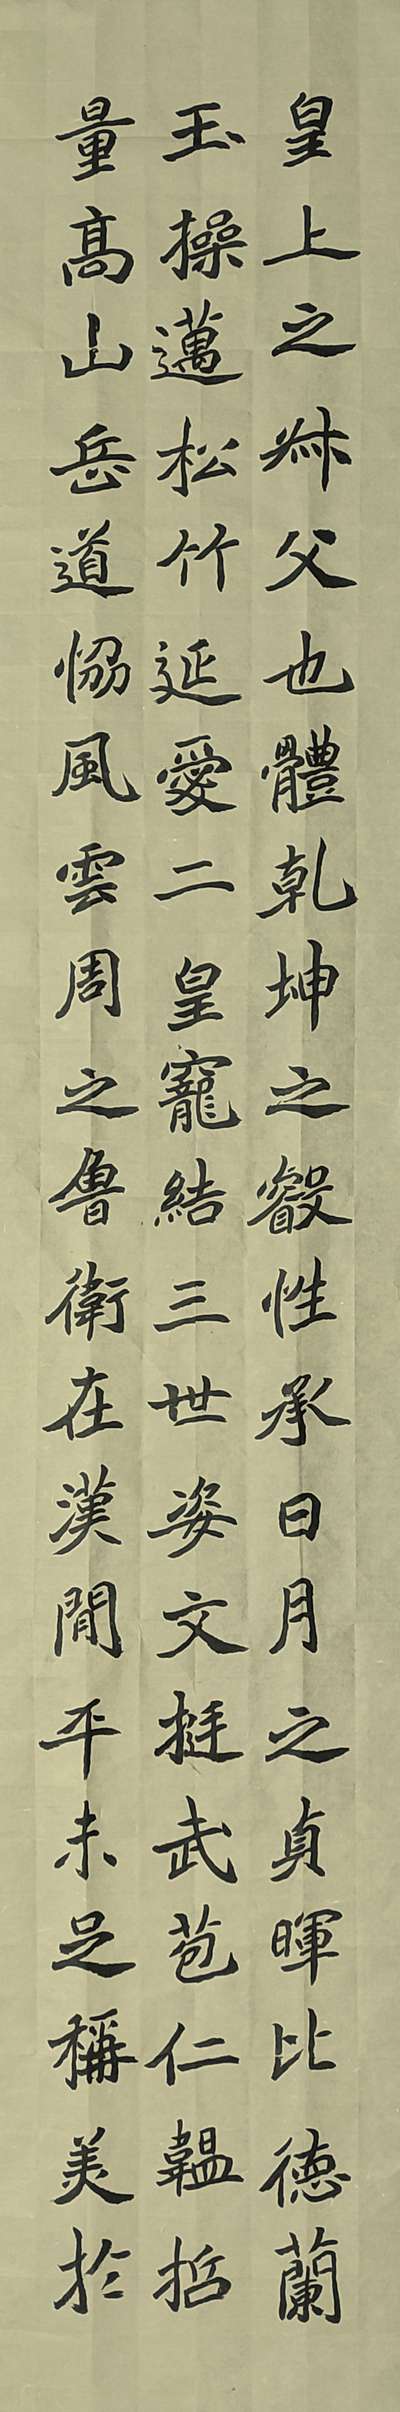 皇上之叔父也體乾坤之叡性承日月之貞暉比德蘭
玉操邁松竹延愛二皇寵結三世姿文挺武苞仁韞哲
量高山岳道恊風雲周之魯衛在漢閒平未足稱美於